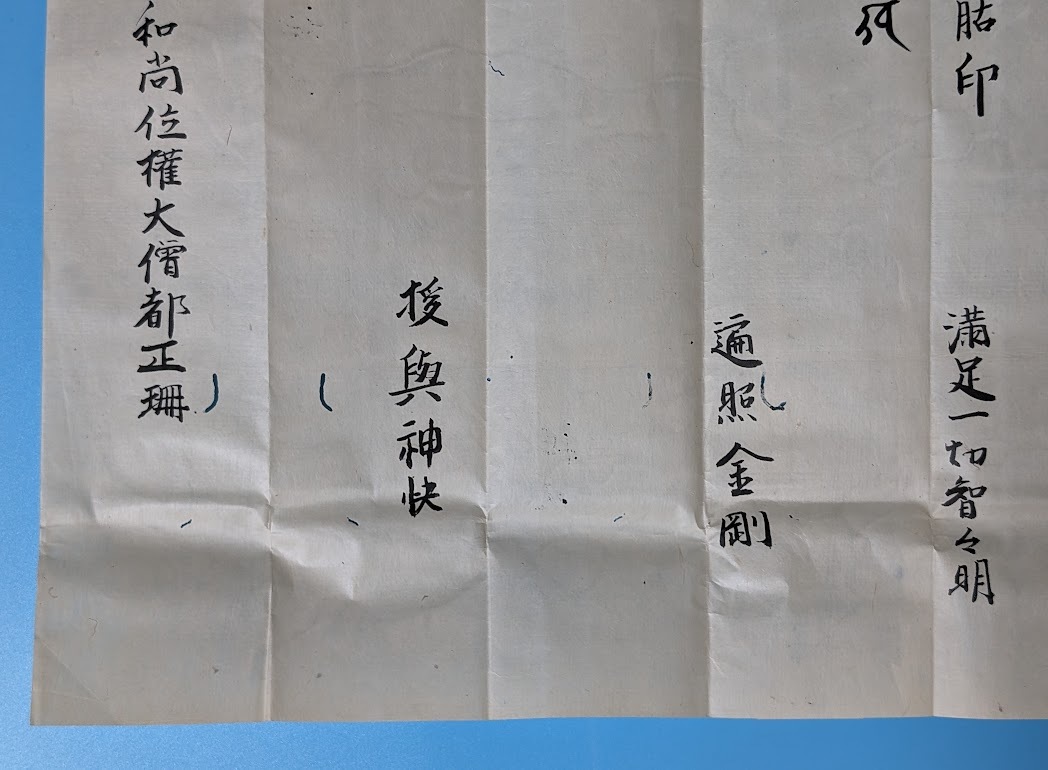 㱠印
満足一切智々明
遍照金剛
授與神快
和尚位權大僧都正珊